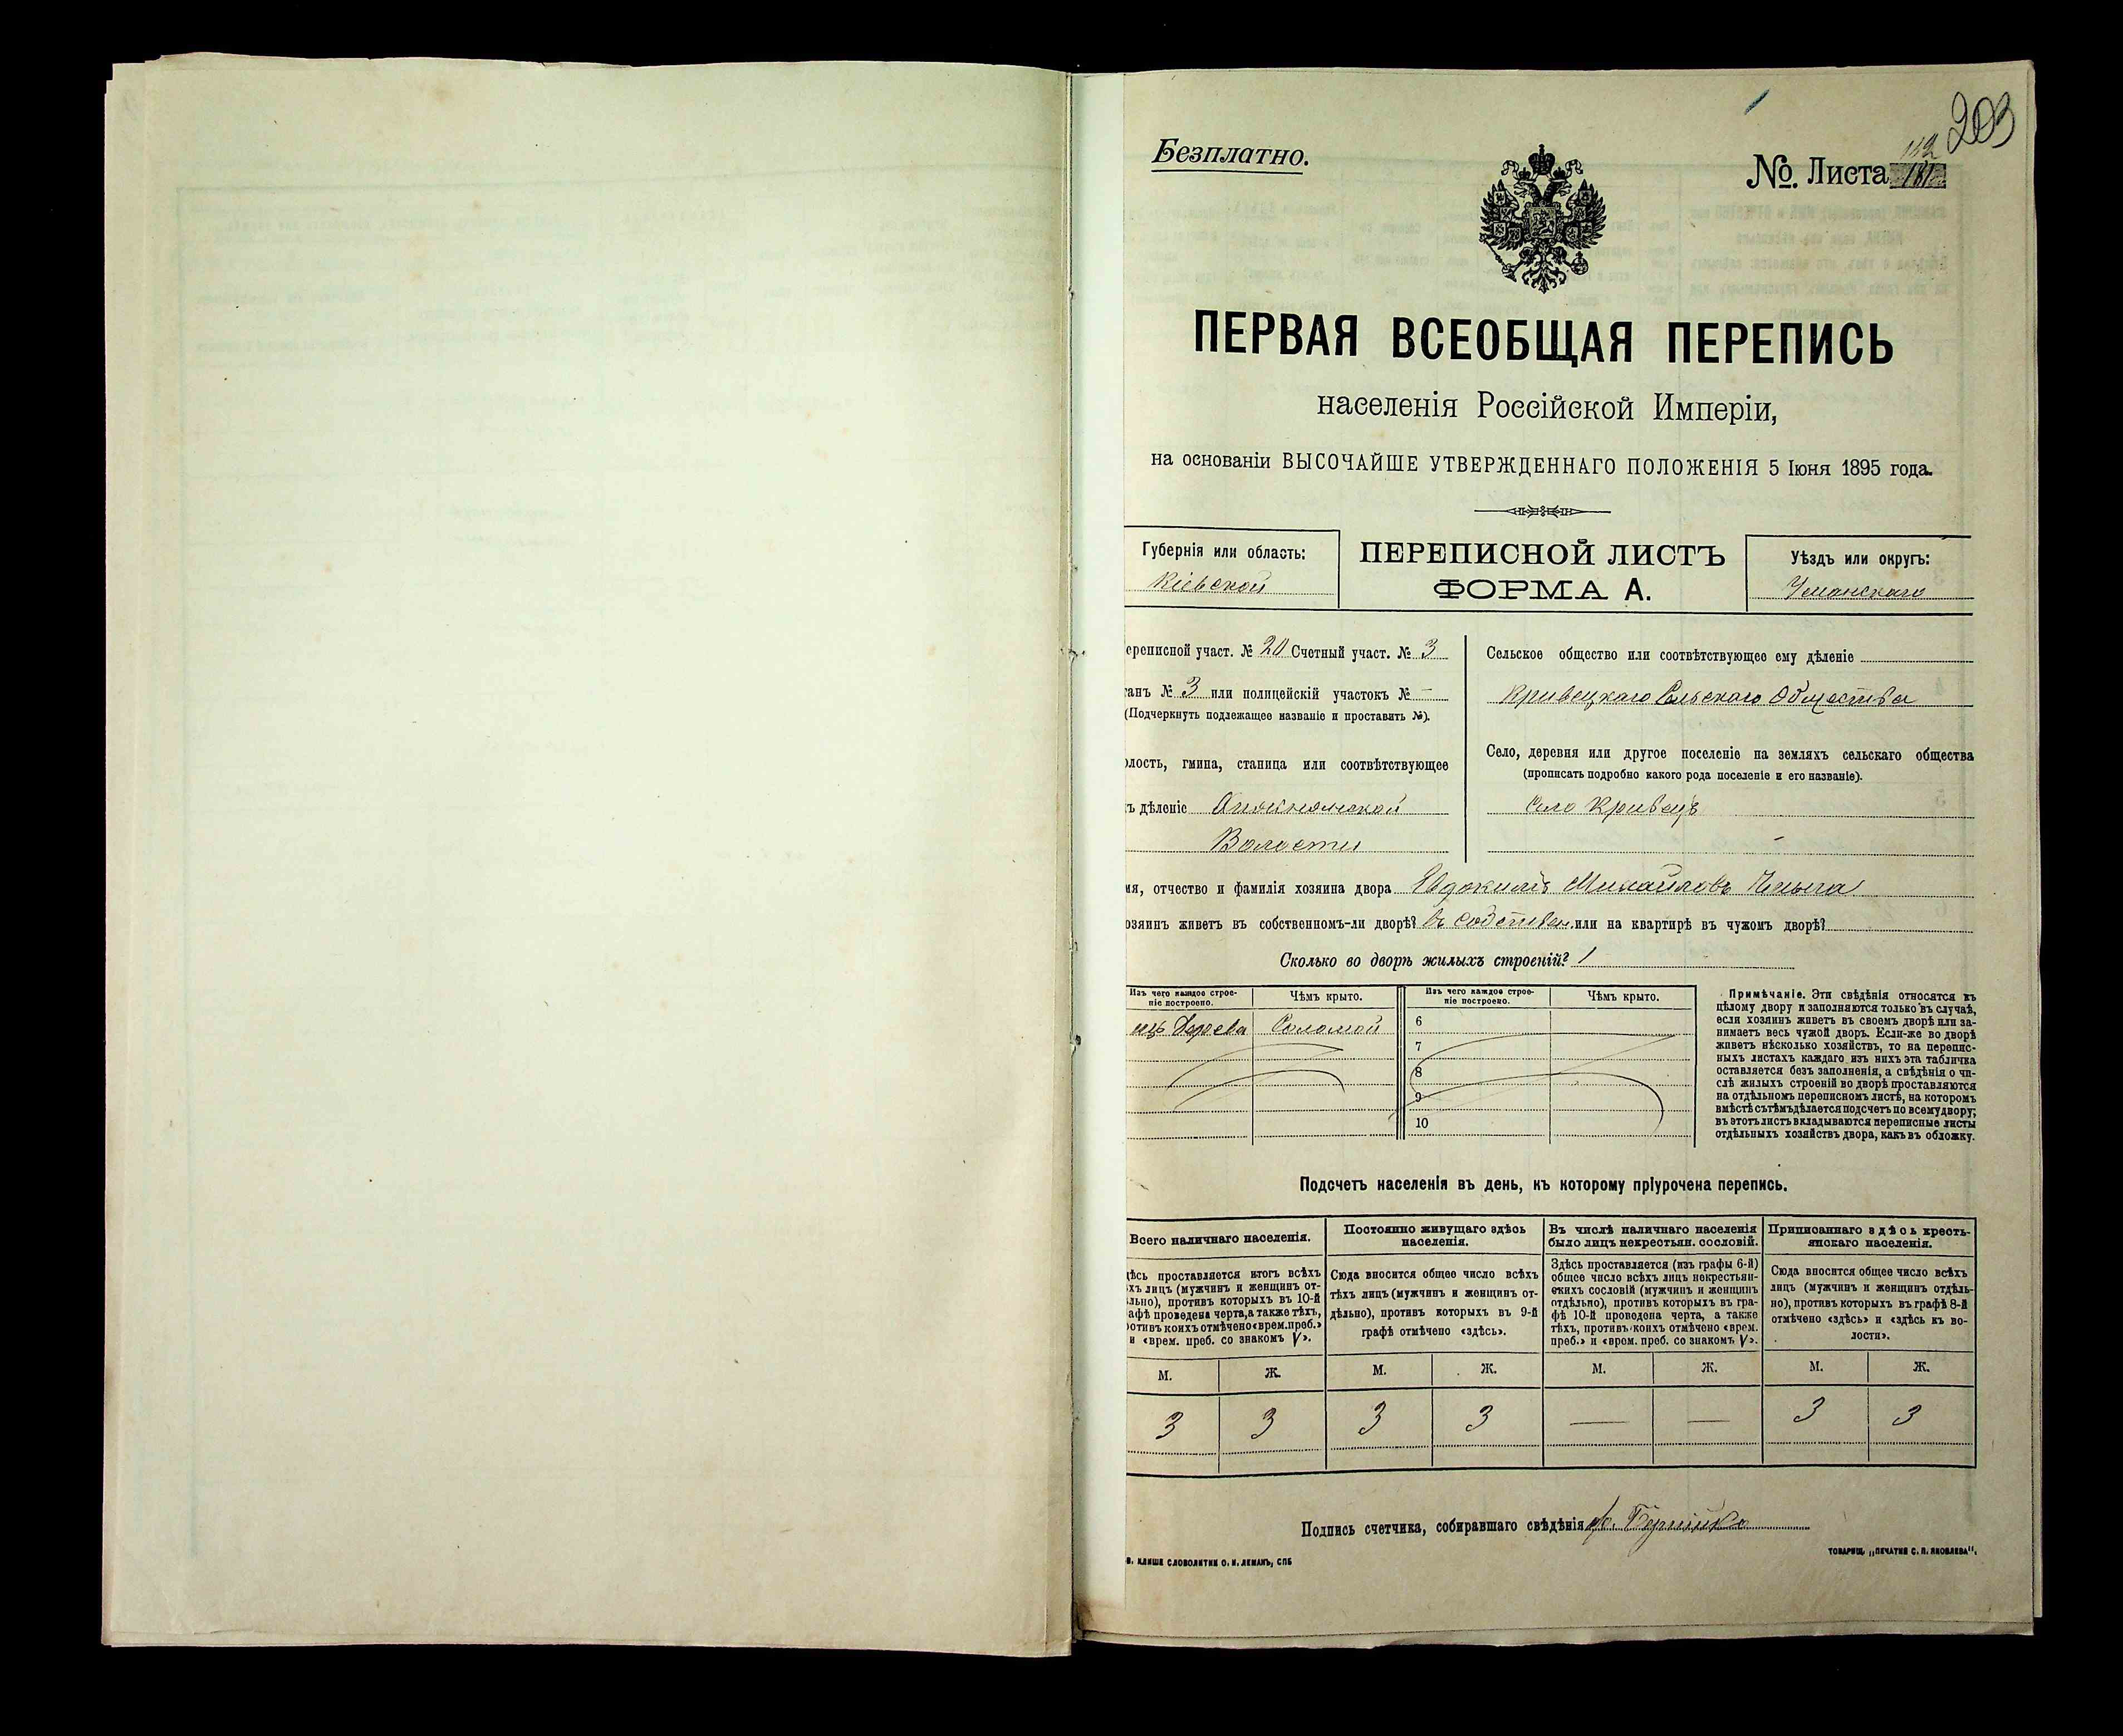 203
Безплатно.
№. Листа 182
181
ПЕРВАЯ ВСЕОБЩАЯ ПЕРЕПИСЬ
населенія Россійской Имперіи,
на основаніи ВЫСОЧАЙШЕ УТВЕРЖДЕННАГО ПОЛОЖЕНІЯ 5 Іюня 1895 года.
Губернія или область:
Кіевской
ПЕРЕПИСНОЙ ЛИСТЪ
ФОРМА А.
Уѣздъ или округъ:
Уманскаго
ереписной участ. № 20 Счетный участ. № 3
танъ № 3 или полицейскій участокъ № —
(Подчеркнуть подлежащее названіе и проставить №).
олость, гмина, станица или соотвѣтствующее
ъ дѣленіе
Волости
Сельское общество или соотвѣтствующее ему дѣленіе
Кривецкаго Сельскаго Общества
Село, деревня или другое поселеніе на земляхъ сельскаго общества
(прописать подробно какого рода поселеніе и его названіе).
Село Кривецъ
мя, отчество и фамилія хозяина двора Евдокимъ Михайловъ
озяинъ живетъ въ собственномъ-ли дворѣ? въ собствен. или на квартирѣ въ чужомъ дворѣ?
Сколько во дворѣ жилыхъ строеній? 1
Изъ чего каждое строе-
ніе построено.
Чѣмъ крыто.
изъ Дерева Соломой
Изъ чего каждое строе-
ніе построено.
Чѣмъ крыто.
6
7
8
9
10
Примѣчаніе. Эти свѣдѣнія относятся къ
цѣлому двору и заполняются только въ случаѣ,
если хозяинъ живетъ въ своемъ дворѣ или за-
нимаетъ весь чужой дворъ. Если-же во дворѣ
живетъ нѣсколько хозяйствъ, то на перепис-
ныхъ листахъ каждаго изъ нихъ эта табличка
оставляется безъ заполненія, а свѣдѣнія о чи-
слѣ жилыхъ строеній во дворѣ проставляются
на отдѣльномъ переписномъ листѣ, на которомъ
вмѣстѣ съ тѣмъ дѣлается подсчетъ по всему двору;
въ этотъ листъ вкладываются переписные листы
отдѣльныхъ хозяйствъ двора, какъ въ обложку.
Подсчетъ населенія въ день, къ которому пріурочена перепись.
Всего наличнаго населенія.
дѣсь проставляется итогъ всѣхъ
хъ лицъ (мужчинъ и женщинъ от-
льно), противъ которыхъ въ 10-й
афѣ проведена черта, а также тѣхъ,
отивъ коихъ отмѣчено «врем. преб.»
и «врем. преб. со знакомъ V».
М. Ж.
3 3
Постоянно живущаго здѣсь
населенія.
Сюда вносится общее число всѣхъ
тѣхъ лицъ (мужчинъ и женщинъ от-
дѣльно), противъ которыхъ въ 9-й
графѣ отмѣчено «здѣсь».
М. Ж.
3 3
Въ числѣ наличнаго населенія
было лицъ некрестьян. сословій.
Здѣсь проставляется (изъ графы 6-й)
общее число всѣхъ лицъ некрестьян-
скихъ сословій (мужчинъ и женщинъ
отдѣльно), противъ которыхъ въ гра-
фѣ 10-й проведена черта, а также
тѣхъ, противъ коихъ отмѣчено «врем.
преб.» и «врем. преб. со знакомъ V».
М. Ж.
— —
Приписаннаго здѣсь кресть-
янскаго населенія.
Сюда вносится общее число всѣхъ
лицъ (мужчинъ и женщинъ отдѣль-
но), противъ которыхъ въ графѣ 8-й
отмѣчено «здѣсь» и «здѣсь къ во-
лости».
М. Ж.
3 3
Подпись счетчика, собиравшаго свѣдѣнія
в. КЛИШЕ СЛОВОЛИТНИ О. И. ЛЕМАНЪ, СПБ
ТОВАРИЩ. „ПЕЧАТНЯ С. П. ЯКОВЛЕВА“.